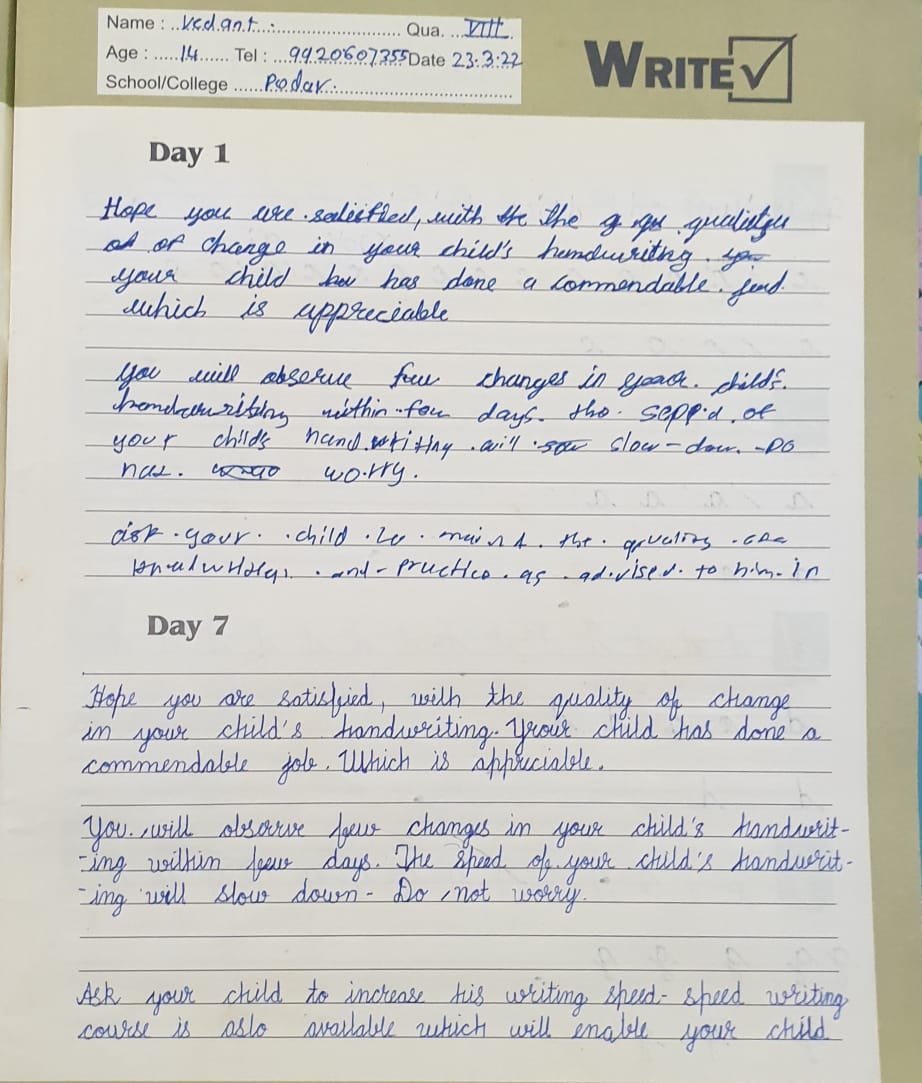 Name : Vedant Qua. VIII
Age : 14 Tel : 9920607355 Date 23.3.22
School/College Podar
WRITE
Day 1
Hope you are satisfied, with the the
of change in your child's handwriting.
your child has done a commendable.
which is appreciable
You will observe few changes in child's.
within few days. of
your child's handwriting will slow-down. -Do
worry.
ask your child the
and - practice as advised to him in
Day 7
Hope you are satisfied, with the quality of change
in your child's handwriting. Your child has done a
commendable job. Which is appreciable.
You will observe few changes in your child's handwrit-
-ing within few days. The speed of your child's handwrit-
-ing will slow down - Do not worry.
Ask your child to increase his writing speed- speed writing
course is aslo available which will enable your child